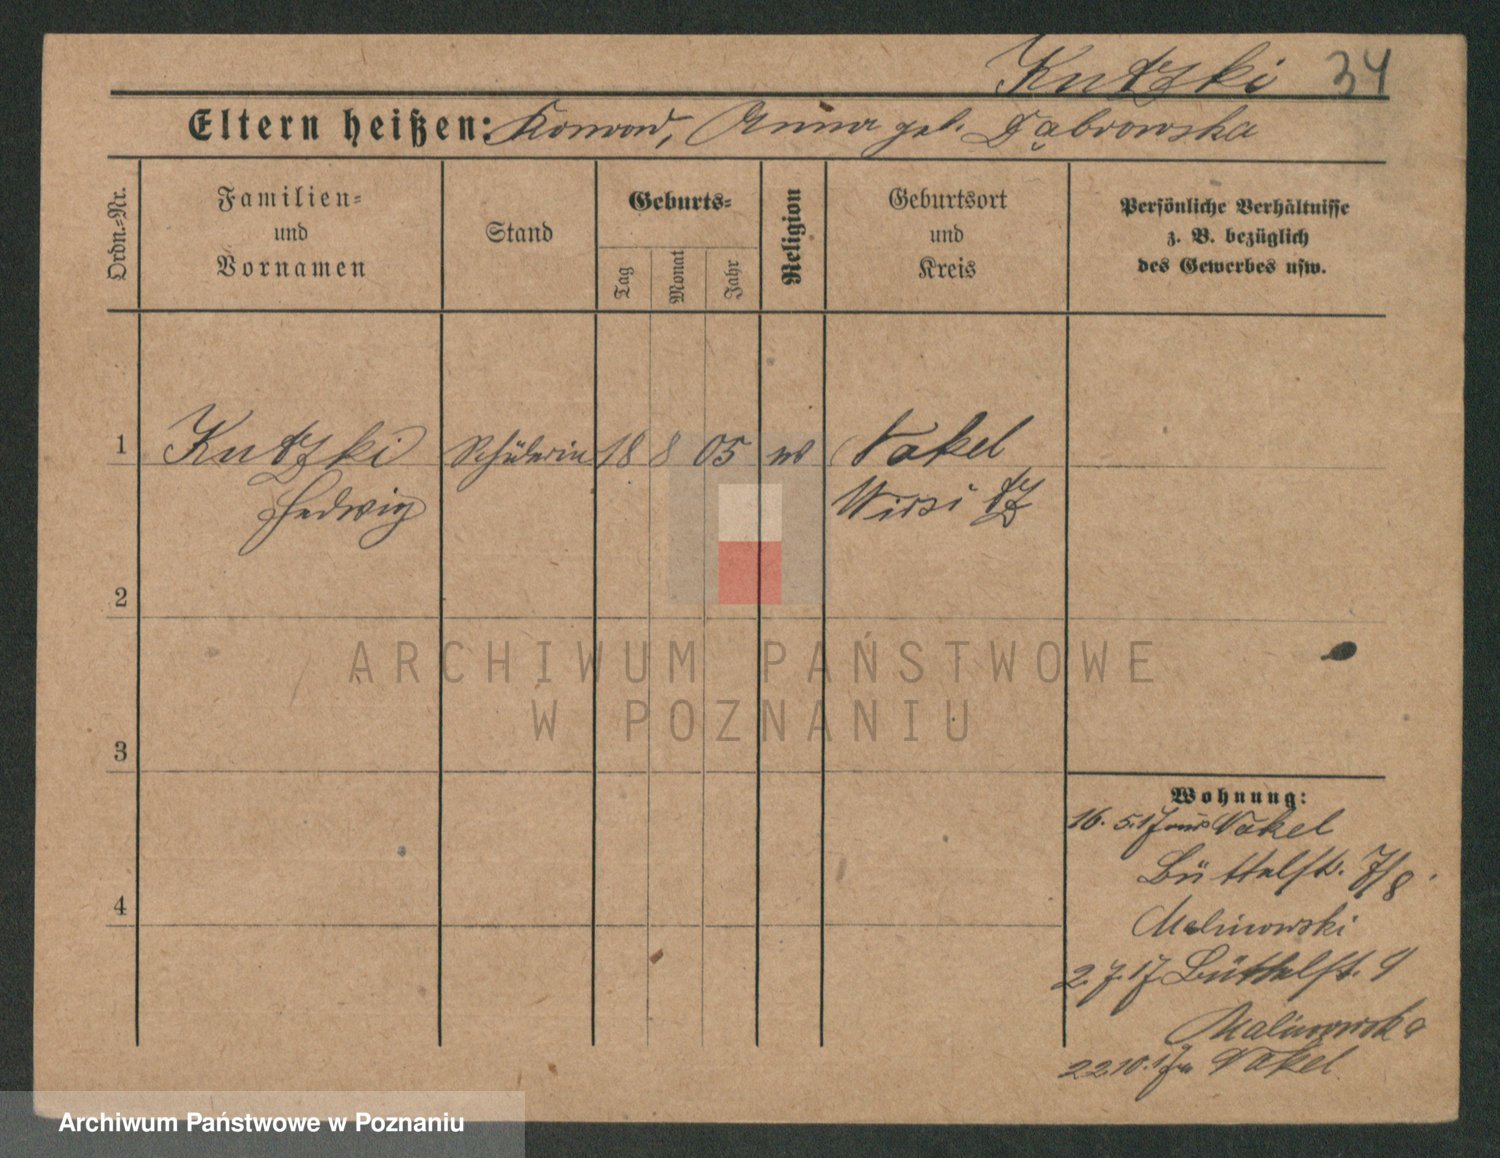 Kutzki 34
Eltern heißen: Konrad, Anna geb. Dąbrowska
Ordn.-Nr.
Familien-
und
Vornamen
Stand
Geburts-
Tag
Monat
Jahr
Religion
Geburtsort
und
Kreis
Persönliche Verhältnisse
z. B. bezüglich
des Gewerbes usw.
1 Kutzki Schülerin 18 8 05 Nakel
Hedwig Wirsitz
2
3
4
ARCHIWUM PAŃSTWOWE
W POZNANIU
Wohnung:
16. 5. 17 aus Nakel
Büttelstr. 7/8.
Malinowski
2. 7. 17. Büttelst. 9
Malinowska
22.10.17 n Nakel
Archiwum Państwowe w Poznaniu